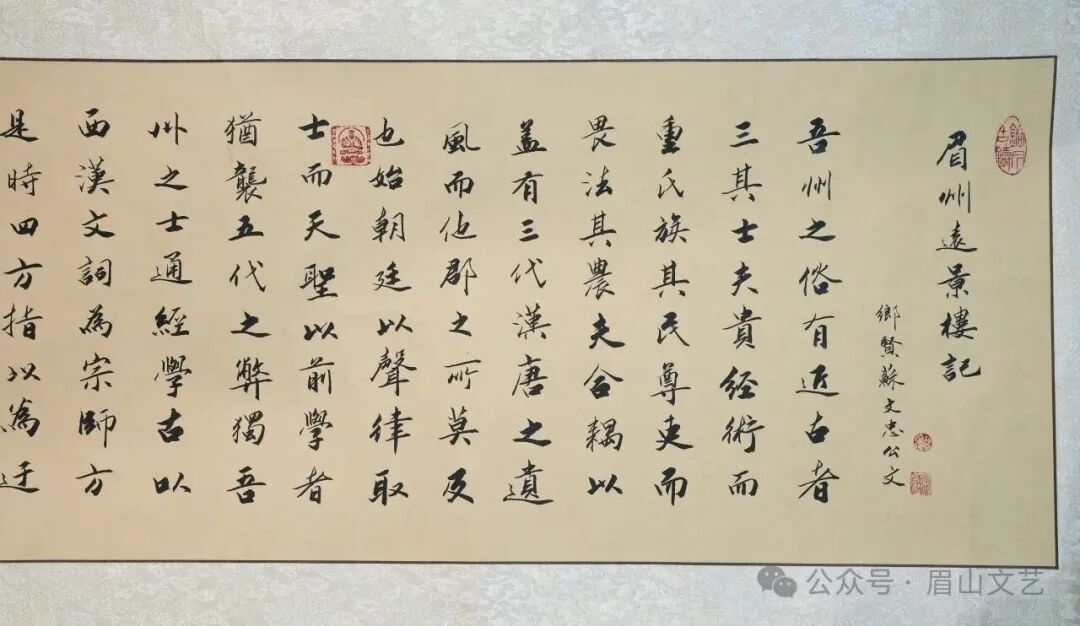 眉州遠景樓記
鄉賢蘇文忠公文
吾州之俗有近古者
三其士夫貴經術而
重氏族其民尊吏而
畏法其農夫合耦以
盖有三代漢唐之遺
風而他郡之所莫及
也始朝廷以聲律取
士而天聖以前學者
猶襲五代之弊獨吾
州之士通經學古以
西漢文詞為宗師方
是時四方指以為迂
公众号·眉山文艺